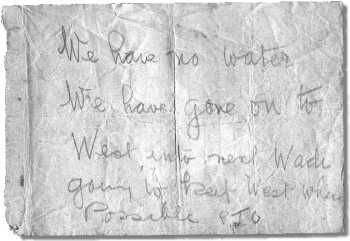 We have no water
We have gone on to
West into next Wadi
going to keep West where
Possible